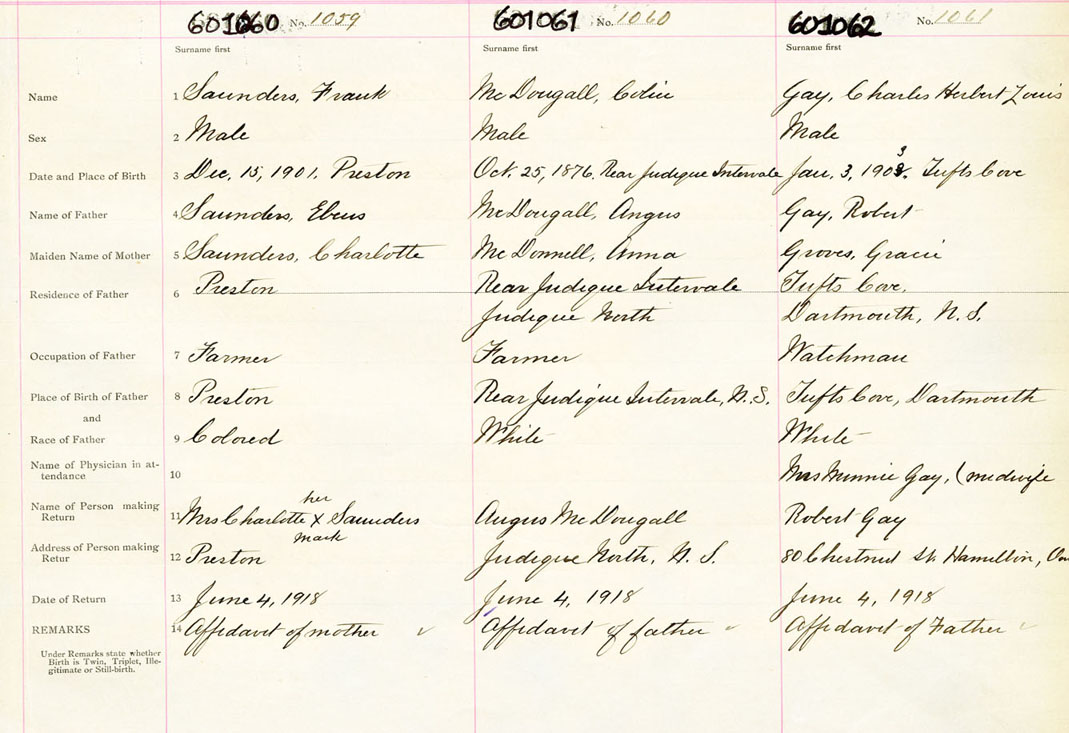 601060 No. 1059 601061 No. 1060 601062 No. 1061
Surname first Surname first Surname first
Name 1 Saunders, Frank McDougall, Colin Gay, Charles Herbert Louis
Sex 2 Male Male Male
3
Date and Place of Birth 3 Dec. 15, 1901. Preston Oct. 25, 1876. Rear Judique Intervale Jan. 3, 190 . Tufts Cove
Name of Father 4 Saunders, Ebens McDougall, Angus Gay, Robert
Maiden Name of Mother 5 Saunders, Charlotte McDonnell, Anna Groves, Gracie
Residence of Father 6 Preston Rear Judique Intervale Tufts Cove.
Judique North Dartmouth, N.S.
Occupation of Father 7 Farmer Farmer Watchman
Place of Birth of Father 8 Preston Rear Judique Intervale, N.S. Tufts Cove, Dartmouth
and
Race of Father 9 Colored White White
Name of Physician in at-
tendance 10 Mrs Minnie Gay, (midwife
her
Name of Person making
Return 11 Mrs Charlotte X Saunders Angus McDougall Robert Gay
mark
Address of Person making
Retur 12 Preston Judique North, N.S. 80 Chestnut St. Hamilton, On
Date of Return 13 June 4, 1918 June 4, 1918 June 4, 1918
REMARKS 14 Affidavit of mother ✓ Affidavit of father ✓ Affidavit of Father ✓
Under Remarks state whether
Birth is Twin, Triplet, Ille-
gitimate or Still-birth.